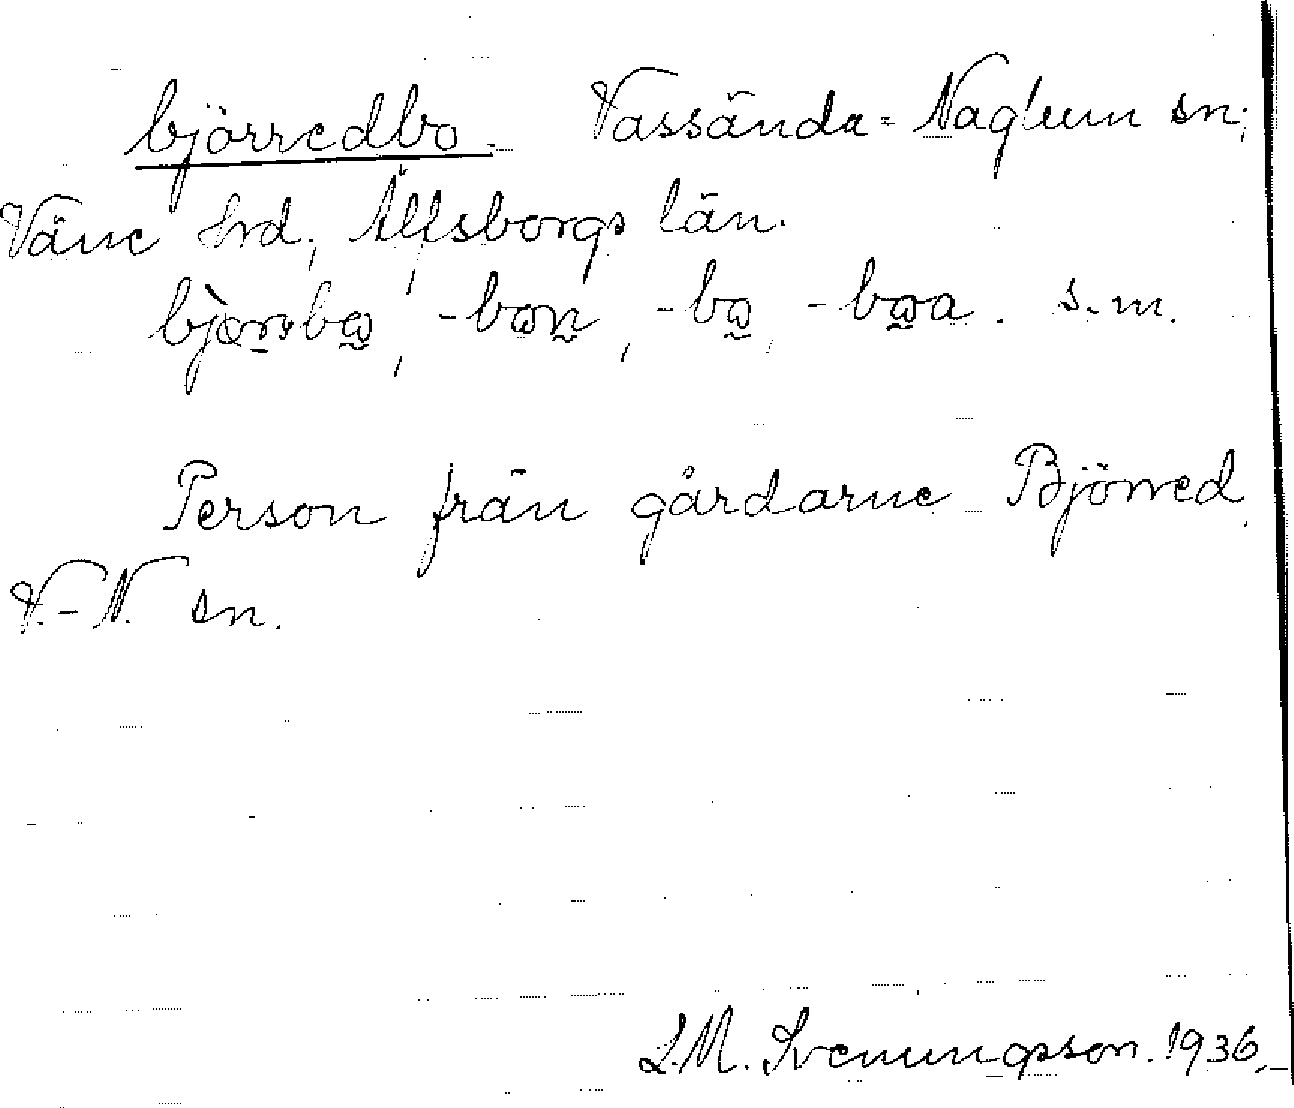 björredbo. Vassända-Naglum sn;
Väne hrd, Älfsborgs län.
-bon, -bo, -boa. s.m.
Person från gårdarne Björred
V.-N. sn.
L.M. Svenungsson. 1936.